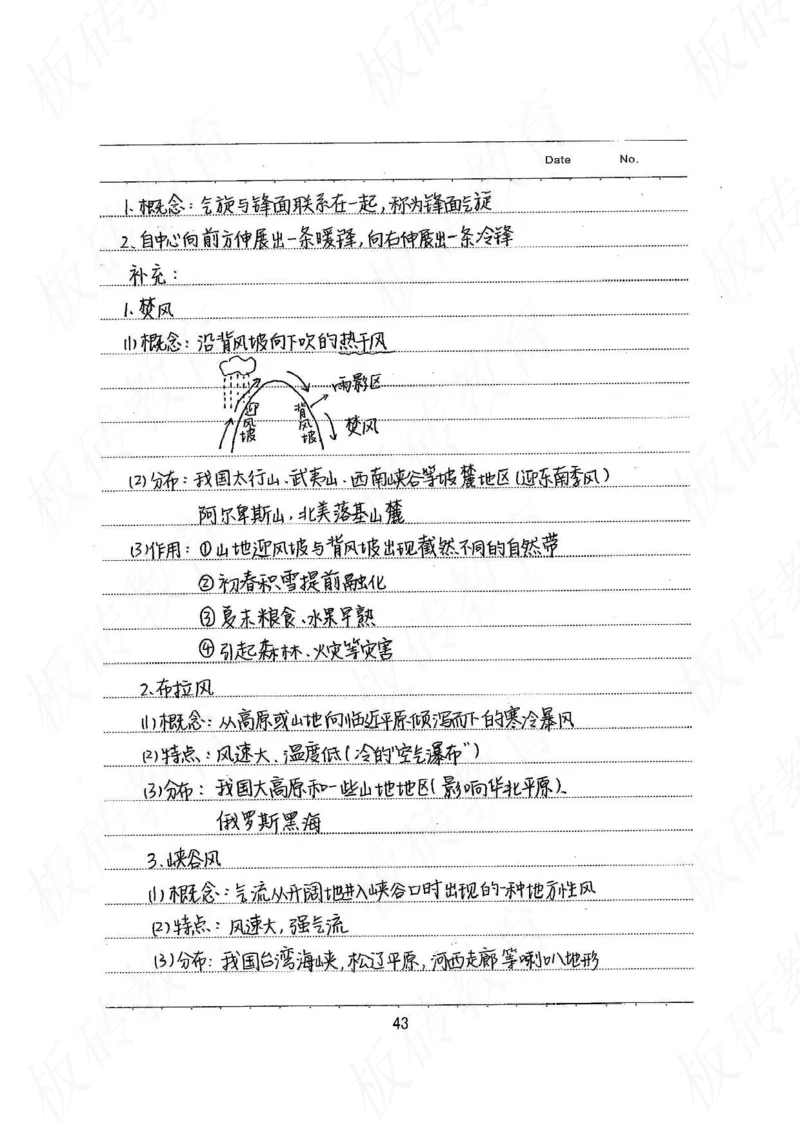 Date No.
1. 概念：气旋与锋面联系在一起，称为锋面气旋
2. 自中心向前方伸展出一条暖锋，向右伸展出一条冷锋
补充：
1. 焚风
(1) 概念：沿背风坡向下吹的热干风
雨影区
迎风坡
背风坡
焚风
(2) 分布：我国太行山、武夷山、西南峡谷等坡麓地区(迎东南季风)
阿尔卑斯山，北美落基山麓
(3) 作用：①山地迎风坡与背风坡出现截然不同的自然带
②初春积雪提前融化
③夏末粮食、水果早熟
④引起森林、火灾等灾害
2. 布拉风
(1) 概念：从高原或山地向临近平原倾泻而下的寒冷暴风
(2) 特点：风速大、温度低(冷的"空气瀑布")
(3) 分布：我国大高原和一些山地地区(影响华北平原)、
俄罗斯黑海
3. 峡谷风
(1) 概念：气流从开阔地进入峡谷口时出现的一种地方性风
(2) 特点：风速大，强气流
(3) 分布：我国台湾海峡，松辽平原，河西走廊等喇叭地形
43
板砖教育